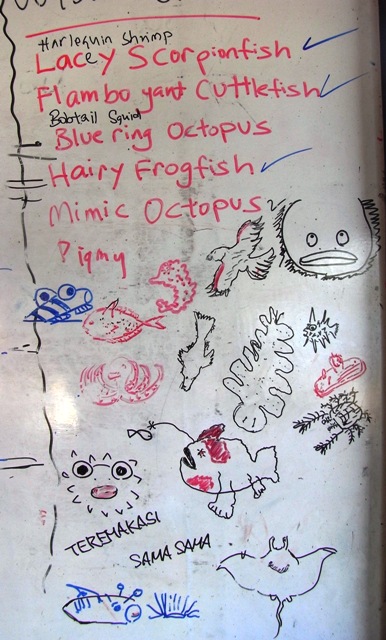 Harlequin Shrimp
Lacey Scorpionfish
Flamboyant Cuttlefish
Bobtail Squid
Blue ring Octopus
Hairy Frogfish
Mimic Octopus
Pigmy
TEREMAKASI
SAMA SAMA